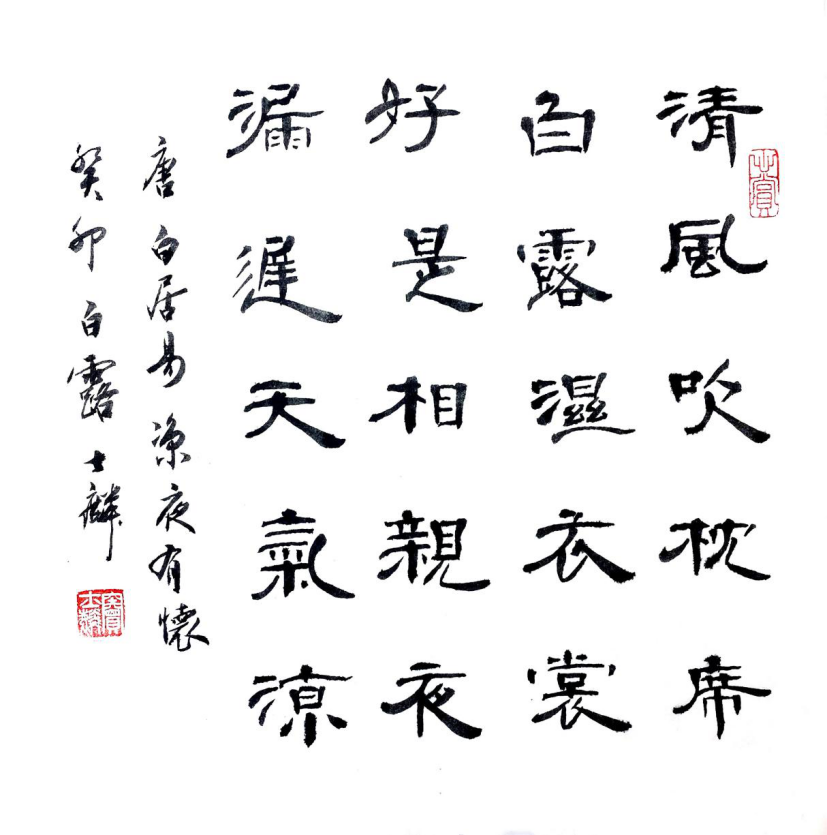 清風吹枕席
白露濕衣裳
好是相親夜
漏遲天氣涼
唐白居易涼夜有懷
癸卯白露士麟